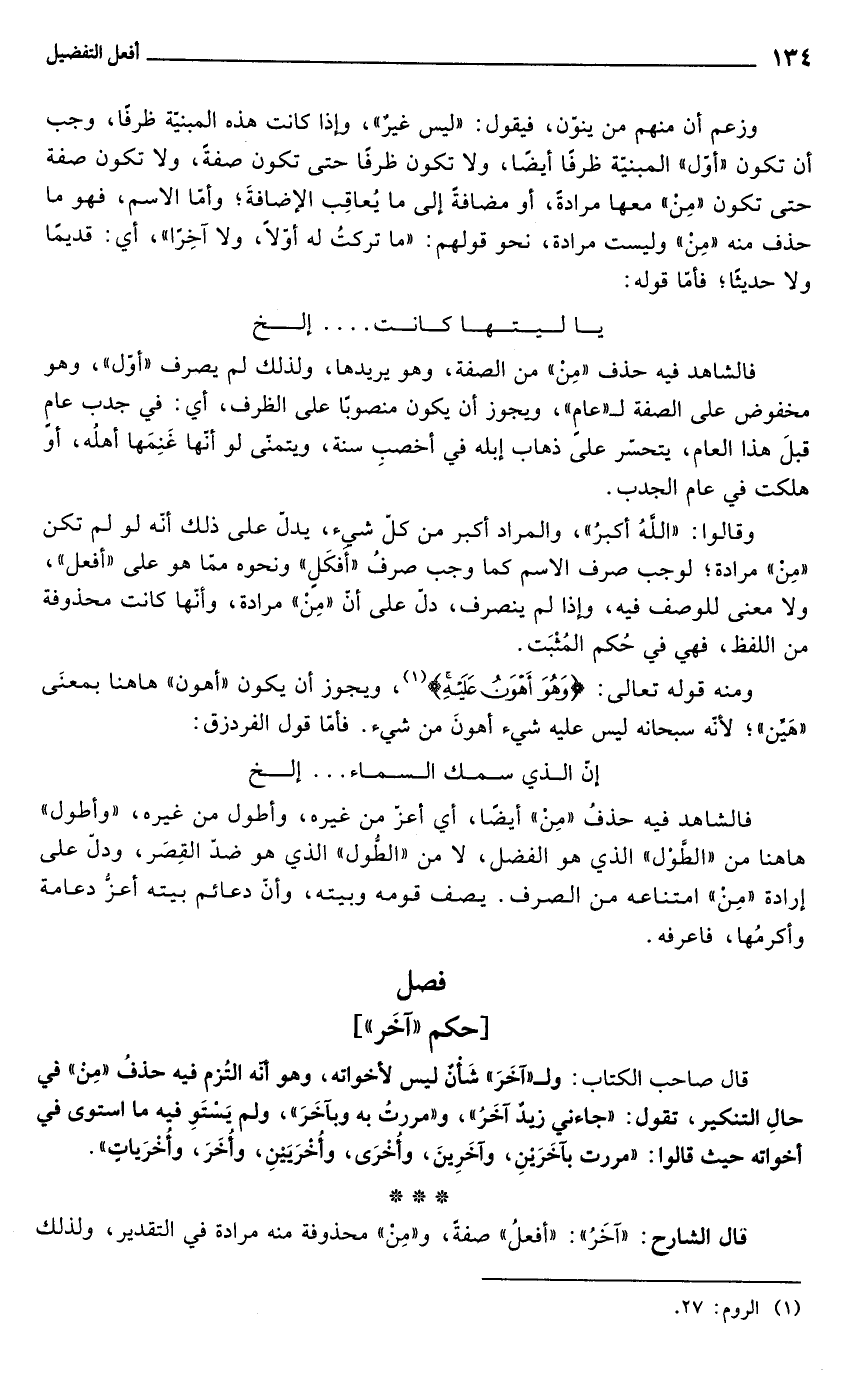 ١٣٤ أفعل التفضيل
وزعم أن منهم من ينوّن، فيقول: «ليس غيرٌ»، وإذا كانت هذه المبنيّة ظرفًا، وجب
أن تكون «أوّل» المبنيّة ظرفًا أيضًا، ولا تكون ظرفًا حتى تكون صفةً، ولا تكون صفة
حتى تكون «مِنْ» معها مرادةً، أو مضافةً إلى ما يُعاقِب الإضافةَ؛ وأمّا الاسم، فهو ما
حذف منه «مِنْ» وليست مرادة، نحو قولهم: «ما تركتُ له أوّلاً، ولا آخِرًا»، أي: قديمًا
ولا حديثًا؛ فأمّا قوله:
يا ليتها كانت.... إلخ
فالشاهد فيه حذف «مِنْ» من الصفة، وهو يريدها، ولذلك لم يصرف «أوّل»، وهو
مخفوض على الصفة لـ«عام»، ويجوز أن يكون منصوبًا على الظرف، أي: في جدب عام
قبلَ هذا العام، يتحسّر على ذهاب إبله في أخصبِ سنة، ويتمنّى لو أنّها غَنِمَها أهلُه، أو
هلكت في عام الجدب.
وقالوا: «اللَّهُ أكبرُ»، والمراد أكبر من كلّ شيء، يدلّ على ذلك أنّه لو لم تكن
«مِنْ» مرادة؛ لوجب صرف الاسم كما وجب صرفُ «أَفكَلٍ» ونحوه ممّا هو على «أفعل»،
ولا معنى للوصف فيه، وإذا لم ينصرف، دلّ على أنّ «مِنْ» مرادة، وأنّها كانت محذوفة
من اللفظ، فهي في حُكم المُثْبَت.
ومنه قوله تعالى: ﴿وَهُوَ أَهْوَنُ عَلَيْهِ﴾(١)، ويجوز أن يكون «أهون» هاهنا بمعنَى
«هَيِّن»؛ لأنّه سبحانه ليس عليه شيء أهونَ من شيء. فأمّا قول الفرزدق:
إنّ الذي سمك السماء... إلخ
فالشاهد فيه حذفُ «مِنْ» أيضًا، أي أعزّ من غيره، وأطول من غيره، «وأطول»
هاهنا من «الطَّوْل» الذي هو الفضل، لا من «الطُّول» الذي هو ضدّ القِصَر، ودلّ على
إرادة «مِنْ» امتناعه من الصرف. يصف قومه وبيته، وأنّ دعائم بيته أعزُّ دعامة
وأكرمُها، فاعرفه.
فصل
[حكم «آخَر»]
قال صاحب الكتاب: ولـ«آخَرَ» شَأْنٌ ليس لأخواته، وهو أنّه التُزم فيه حذفُ «مِنْ» في
حالِ التنكير، تقول: «جاءني زيدٌ آخَرُ»، و«مررتُ به وبآخَرَ»، ولم يَسْتَوِ فيه ما استوى في
أخواته حيث قالوا: «مررت بآخَرَيْنِ، وآخَرِينَ، وأُخْرَى، وأُخْرَيَيْنِ، وأُخَرَ، وأُخْرَياتٍ».
***
قال الشارح: «آخَرُ»: «أفعلُ» صفةً، و«مِنْ» محذوفة منه مرادة في التقدير، ولذلك
(١) الروم: ٢٧.